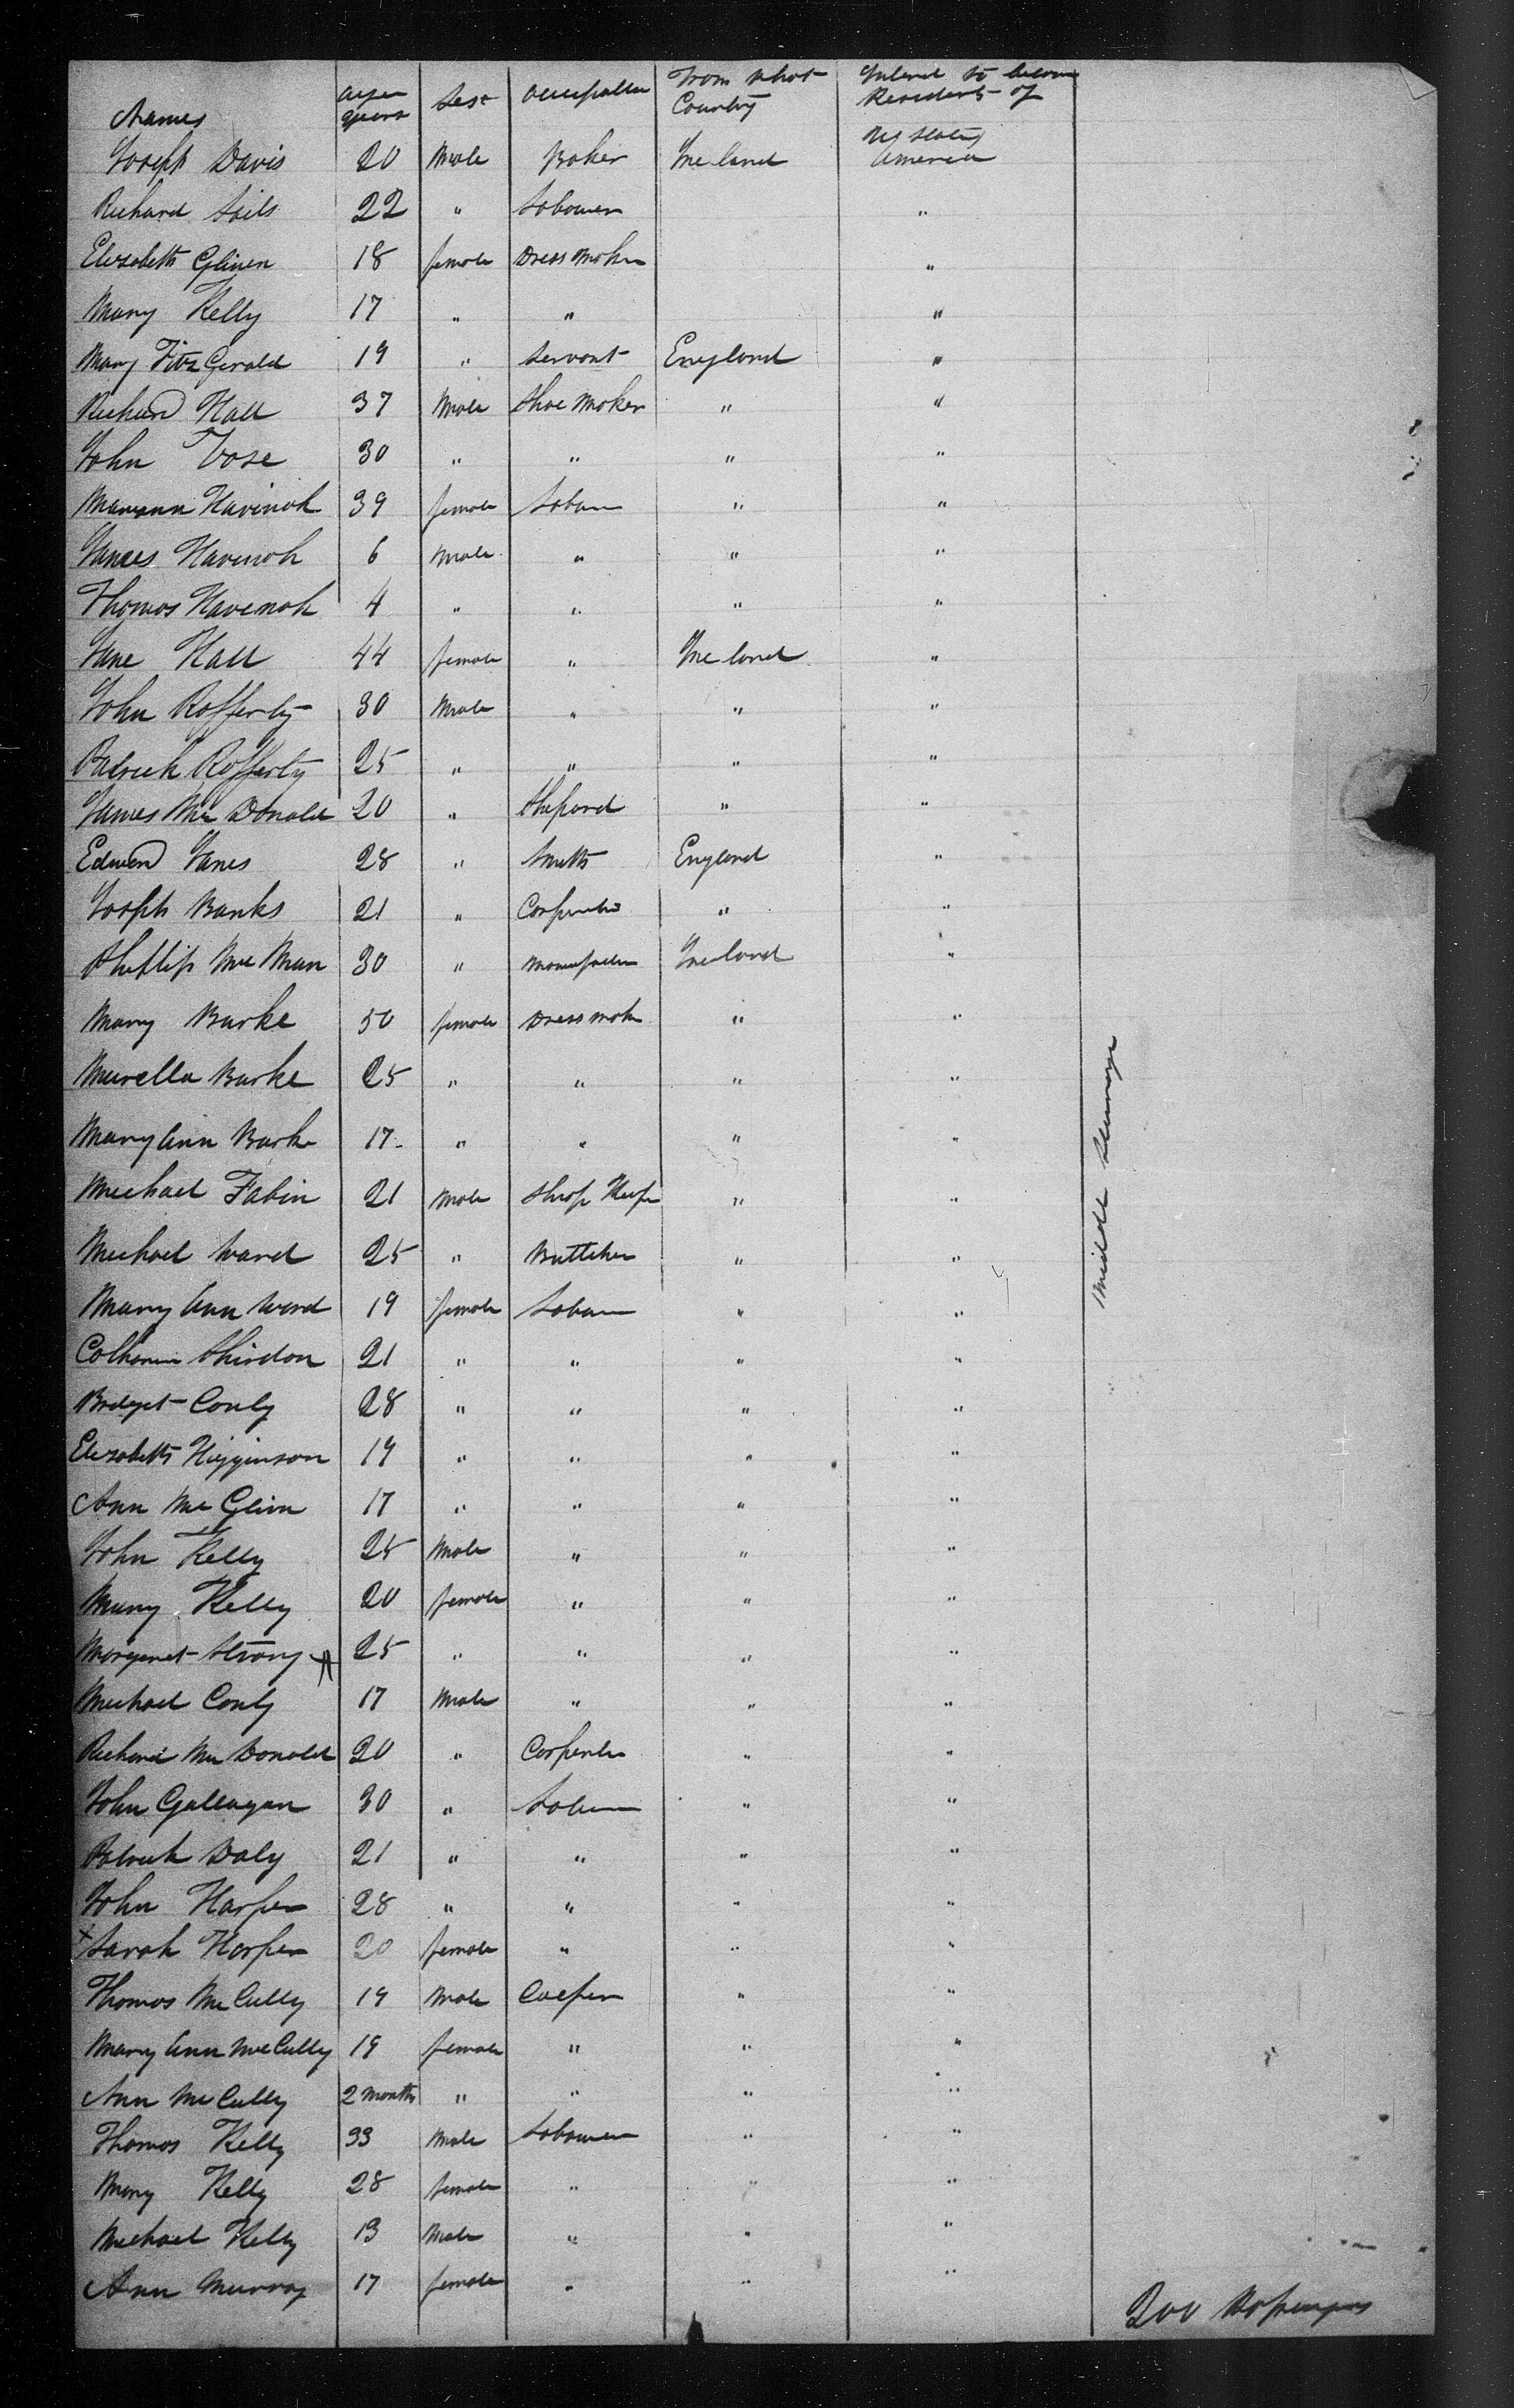 Names Age years Sex Occupation From what Country Intend to become Residents of
Joseph Davis 20 Male Baker Ireland U States America
Richard 22 " Labourer "
Elizabeth Glinen 18 female Dress Maker "
Mary Kelly 17 " " "
Mary Fitz Gerald 19 " Servant England "
Richard Hall 37 Male Shoe Maker " "
John Vose 30 " " " "
Havinah 39 female Labour " "
James Havenah 6 Male " " "
Thomas Havenah 4 " " " "
Jane Hall 44 female " Ireland "
John Rafferty 30 Male " " "
Patrick Rafferty 25 " " " "
James Mc Donald 20 " Sheperd " "
Edward Janes 28 " Smith England "
Joseph Banks 21 " Carpenter " "
Phillip Mc Man 30 " Ireland "
Mary Burke 50 female Dress mak " "
Burke 25 " " " "
Mary Ann Burke 17 " " " "
Michael Fabin 21 Male Shop Keep " "
Michael Ward 25 " Buttcher " "
Mary Ann Ward 19 female Labour " "
Catharine Shirdon 21 " " " "
Bridget Conly 28 " " " "
Elizabeth Higginson 19 " " " "
Ann Mc Glinn 17 " " " "
John Kelly 25 Male " " "
Mary Kelly 20 female " " "
Margaret Strong 25 " " " "
Michael Conly 17 Male " " "
Richard Mc Donald 20 " Carpenter " "
John Gallagan 30 " Labour " "
Patrick Daly 21 " " " "
John Harper 28 " " " "
x Sarah Harper 20 female " " "
Thomas Mc Cully 19 Male Cooper " "
Mary Ann Mc Cully 19 female " " "
Ann Mc Cully 2 months " " " "
Thomas Kelly 33 Male Labourer " "
Mary Kelly 28 female " " "
Michael Kelly 13 Male " " "
Ann Murray 17 female " " "
Middle Steerage
200